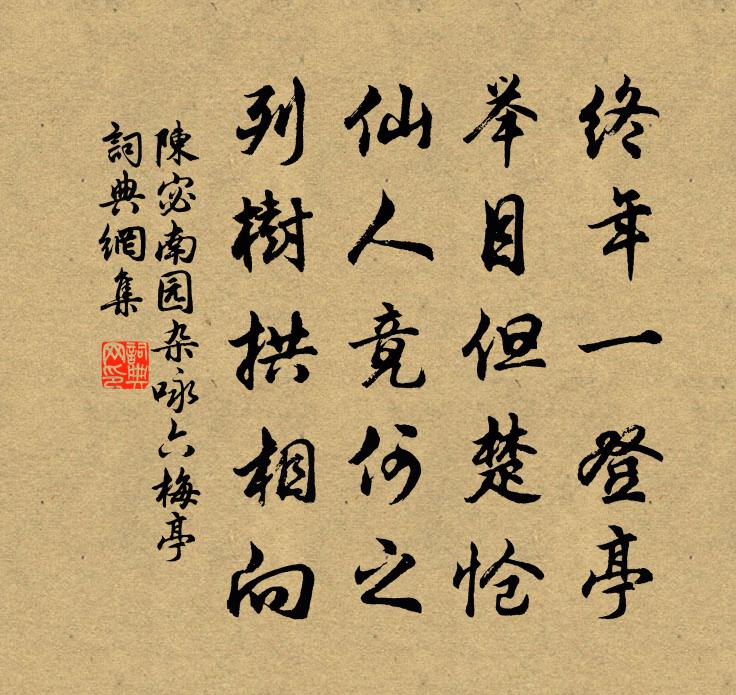 终年一登亭
举目但楚怆
仙人竟何之
列樹拱相向
陳宓南园杂咏六梅亭
詞典網集
詞典网印